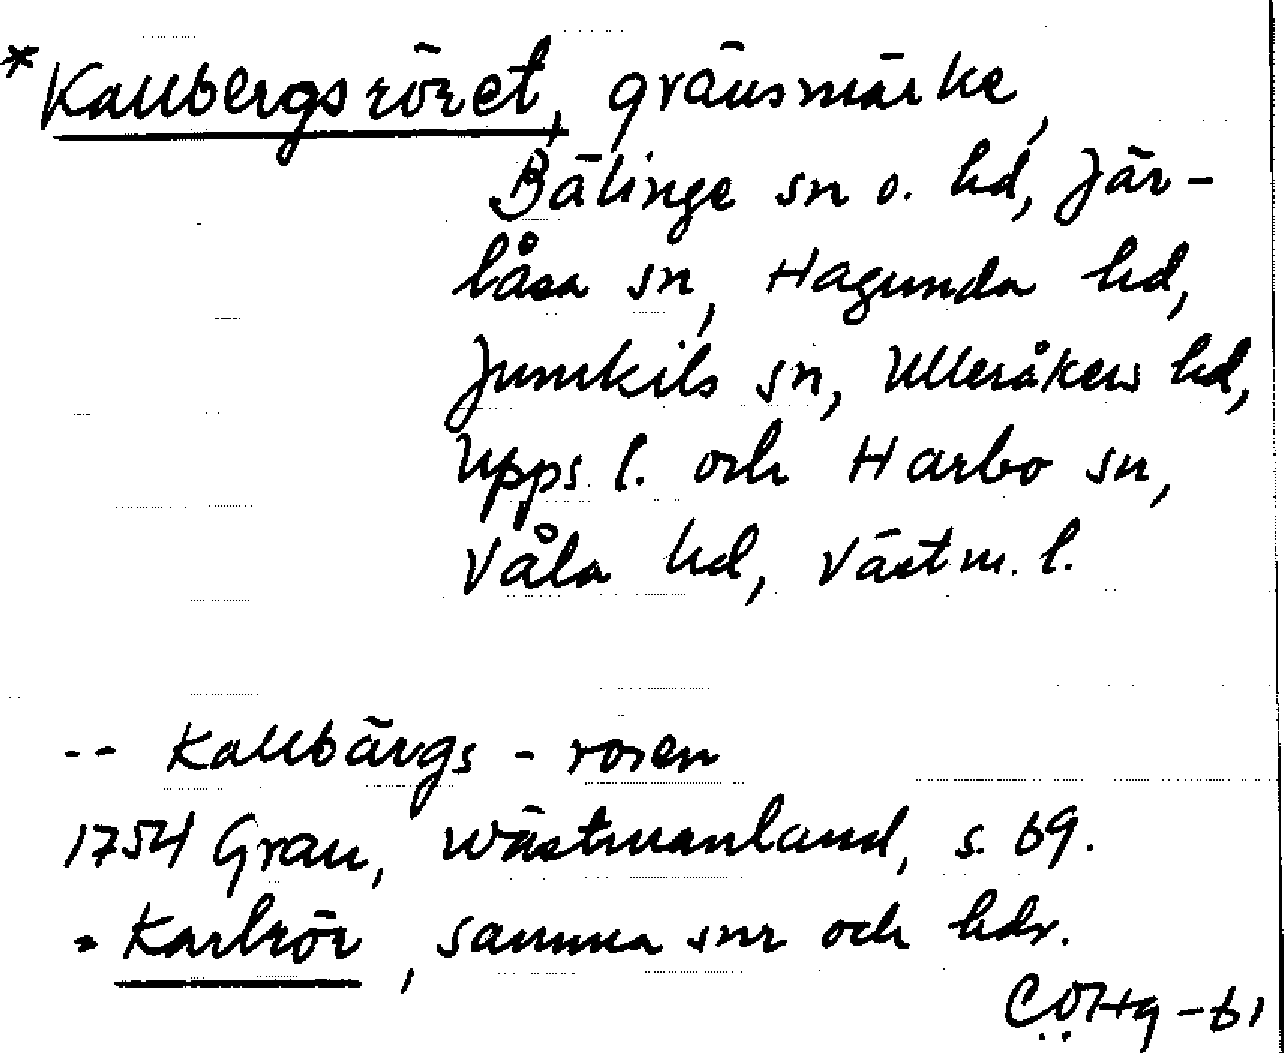 *Kallbergsröret, gränsmärke,
Bälinge sn o. hd, Jär-
låsa sn, Hagunda hd,
Jumkils sn, Ulleråkers hd,
Upps. l. och Harbo sn,
Våla hd, Västm. l.
-- Kallbärgs - rosen
1754 Grau, Wästmanland, s. 69.
= Karlrör, samma snr och hdr.
CÖHg -61